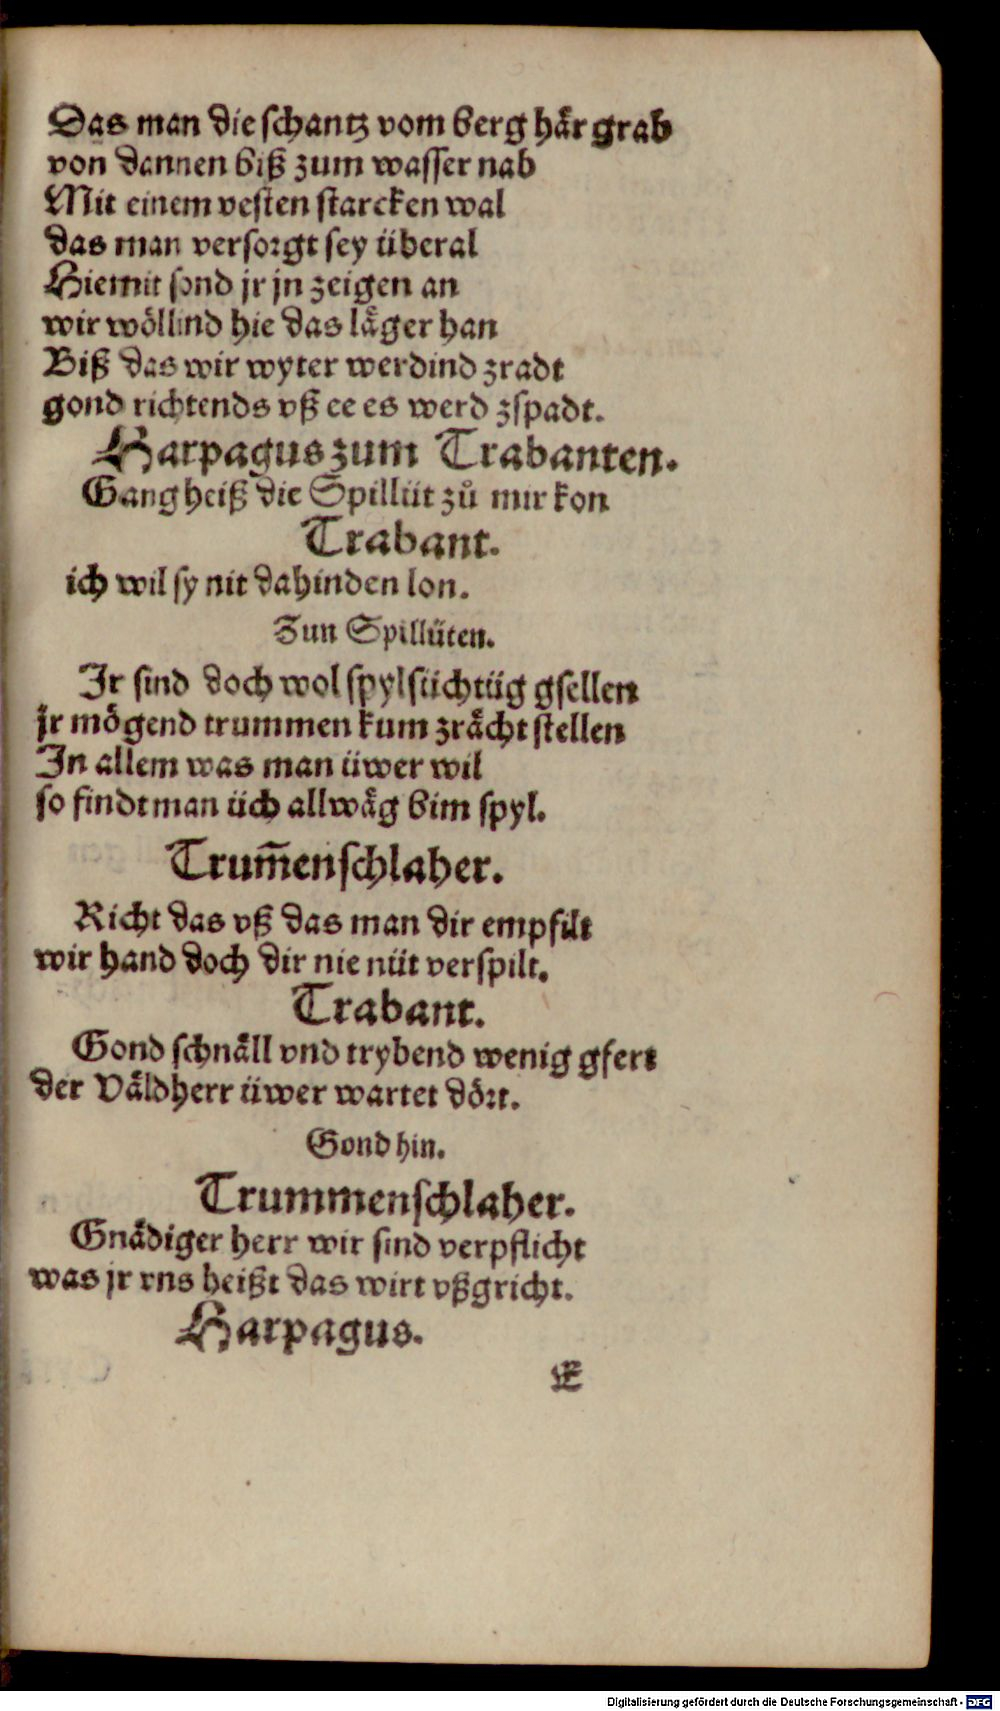 Das man die schantz vom berg här grab
von dannen biß zum wasser nab
Mit einem vesten starcken wal
das man versorgt sey überal
Hiemit sond jr jn zeigen an
wir wöllind hie das läger han
Biß das wir wyter werdind zradt
gond richtends vß ee es werd zspadt.
Harpagus zum Trabanten.
Gang heiß die Spillüt zů mir kon
Trabant.
ich wil sy nit dahinden lon.
Zun Spillüten.
Jr sind doch wol spylsüchtüg gsellen
jr mögend trummen kum zrächt stellen
Jn allem was man üwer wil
so findt man üch allwäg bim spyl.
Trum̄enschlaher.
Richt das vß das man dir empfilt
wir hand doch dir nie nüt verspilt.
Trabant.
Gond schnäll vnd trybend wenig gfert
der Väldherr üwer wartet dört.
Gond hin.
Trummenschlaher.
Gnädiger herr wir sind verpflicht
was jr vns heißt das wirt vßgricht.
Harpagus.
E
Digitalisierung gefördert durch die Deutsche Forschungsgemeinschaft - DFG